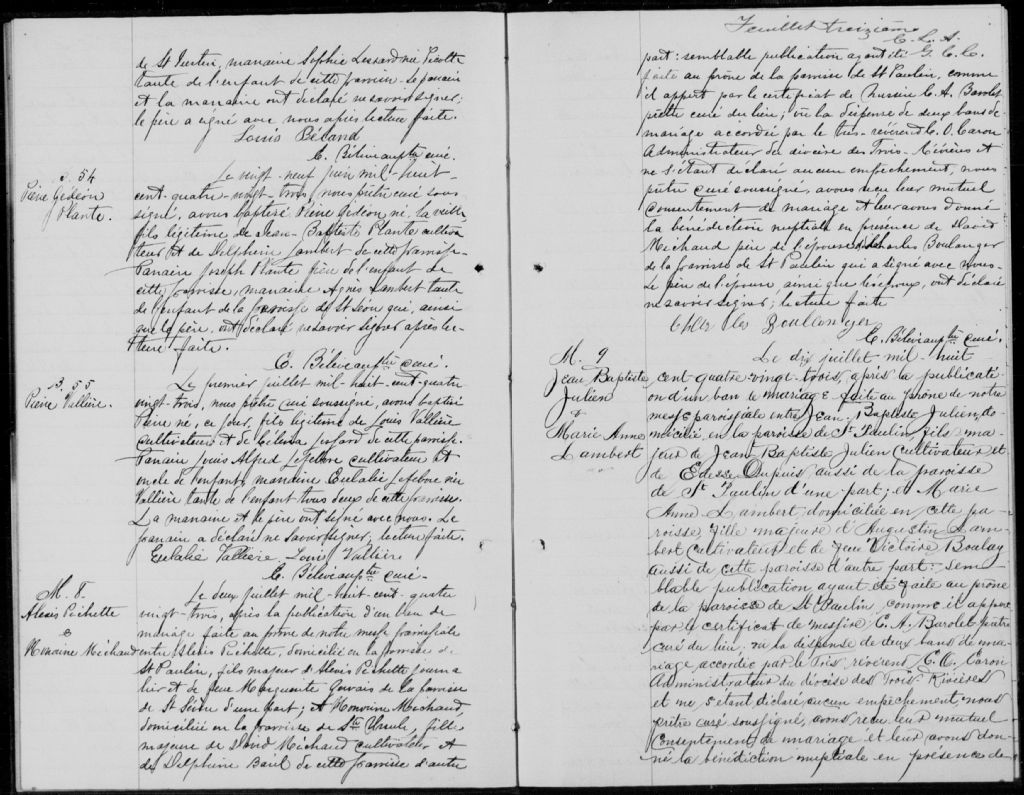 de St Justin, marraine Sophie Lessard née Picotte
tante de l'enfant de cette paroisse. Le parrain
et la marraine ont déclaré ne savoir signer;
le père a signé avec nous après lecture faite.
Louis Béland
E. Béliveau ptre curé.
B. 54
Pierre Gédéon
Plante.
Le vingt-neuf juin mil-huit-
cent-quatre-vingt-trois, nous prêtre curé sous
signé, avons baptisé Pierre Gédéon né, la veille
fils légitime de Jean-Baptiste Plante cultiva
teur et de Delphine Lambert de cette paroisse.
Parrain Joseph Plante frère de l'enfant de
cette paroisse, marraine Agnès Lambert tante
de l'enfant de la paroisse de St Léon qui, ainsi
que le père, ont déclaré ne savoir signer après lec-
ture faite.
E. Béliveau ptre curé.
B. 55
Pierre Vallière.
Le premier juillet mil-huit-cent-quatre
vingt-trois, nous prêtre curé soussigné, avons baptisé
Pierre né, ce jour, fils légitime de Louis Vallière
cultivateur et de de cette paroisse.
Parrain Louis Alfred Lefebvre cultivateur et
oncle de l'enfant, marraine Eulalie Lefebvre née
Vallière tante de l'enfant tous deux de cette paroisse.
La marraine et le père ont signé avec nous. Le
parrain a déclaré ne savoir signer; lecture faite.
Eulalie Vallière, Louis Vallière
E. Béliveau ptre curé.
M. 8.
Alexis Pichette
&
Honorine Michaud
Le deux juillet mil-huit-cent-quatre
vingt-trois, après la publication d'un ban de
mariage faite au prône de notre messe paroissiale
entre Alexis Pichette, domicilié en la paroisse de
St Paulin, fils majeur d'Alexis Pichette journa
lier et de feue Marguerite Gervais de la paroisse
de St Léon d'une part; et Honorine Michaud
domiciliée en la paroisse de Ste Ursule, fille
majeure de David Michaud cultivateur et
de Delphine Baril de cette paroisse d'autre
Feuillet treizième
E. L. A.
G. C. C.
part: semblable publication ayant été
faite au prône de la paroisse de St Paulin, comme
il appert par le certificat de Messire E. A. Barolet
prêtre curé du lieu; vu la dispense de deux bans de
mariage accordée par le très-révérend C. O. Caron
Administrateur du diocèse des Trois-Rivières et
ne s'étant déclaré aucun empêchement, nous
prêtre curé soussigné, avons reçu leur mutuel
consentement de mariage et leur avons donné
la bénédiction nuptiale en présence de David
Michaud père de l'épouse et de Charles Boulanger
de la paroisse de St Paulin qui a signé avec nous.
Le père de l'épouse ainsi que les époux, ont déclaré
ne savoir signer; lecture faite
Boullonger
E. Béliveau ptre curé.
M. 9
Jean Baptiste
Julien
&
Marie Anne
Lambert
Le dix juillet mil-huit
cent quatre-vingt-trois, après la publicati
on d'un ban de mariage faite au prône de notre
messe paroissiale entre Jean-Baptiste Julien, do-
micilié en la paroisse de St Paulin, fils ma-
jeur de Jean Baptiste Julien cultivateur et
de Edesse Dupuis aussi de la paroisse
de St Paulin d'une part; et Marie
Anne Lambert domiciliée en cette pa-
roisse, fille majeure d'Augustin Lam-
bert cultivateur et de feue Victoire Boulay
aussi de cette paroisse d'autre part: sem-
blable publication ayant été faite au prône
de la paroisse de St Paulin, comme il appert
par le certificat de messire E. A. Barolet prêtre
curé du lieu, vu la dispense de deux bans de ma-
riage accordée par le Très révérend C. O. Caron
Administrateur du diocèse des Trois Rivières
et ne s'étant déclaré aucun empêchement, nous
prêtre curé soussigné, avons reçu leur mutuel
consentement de mariage et leur avons don-
né la bénédiction nuptiale en présence de